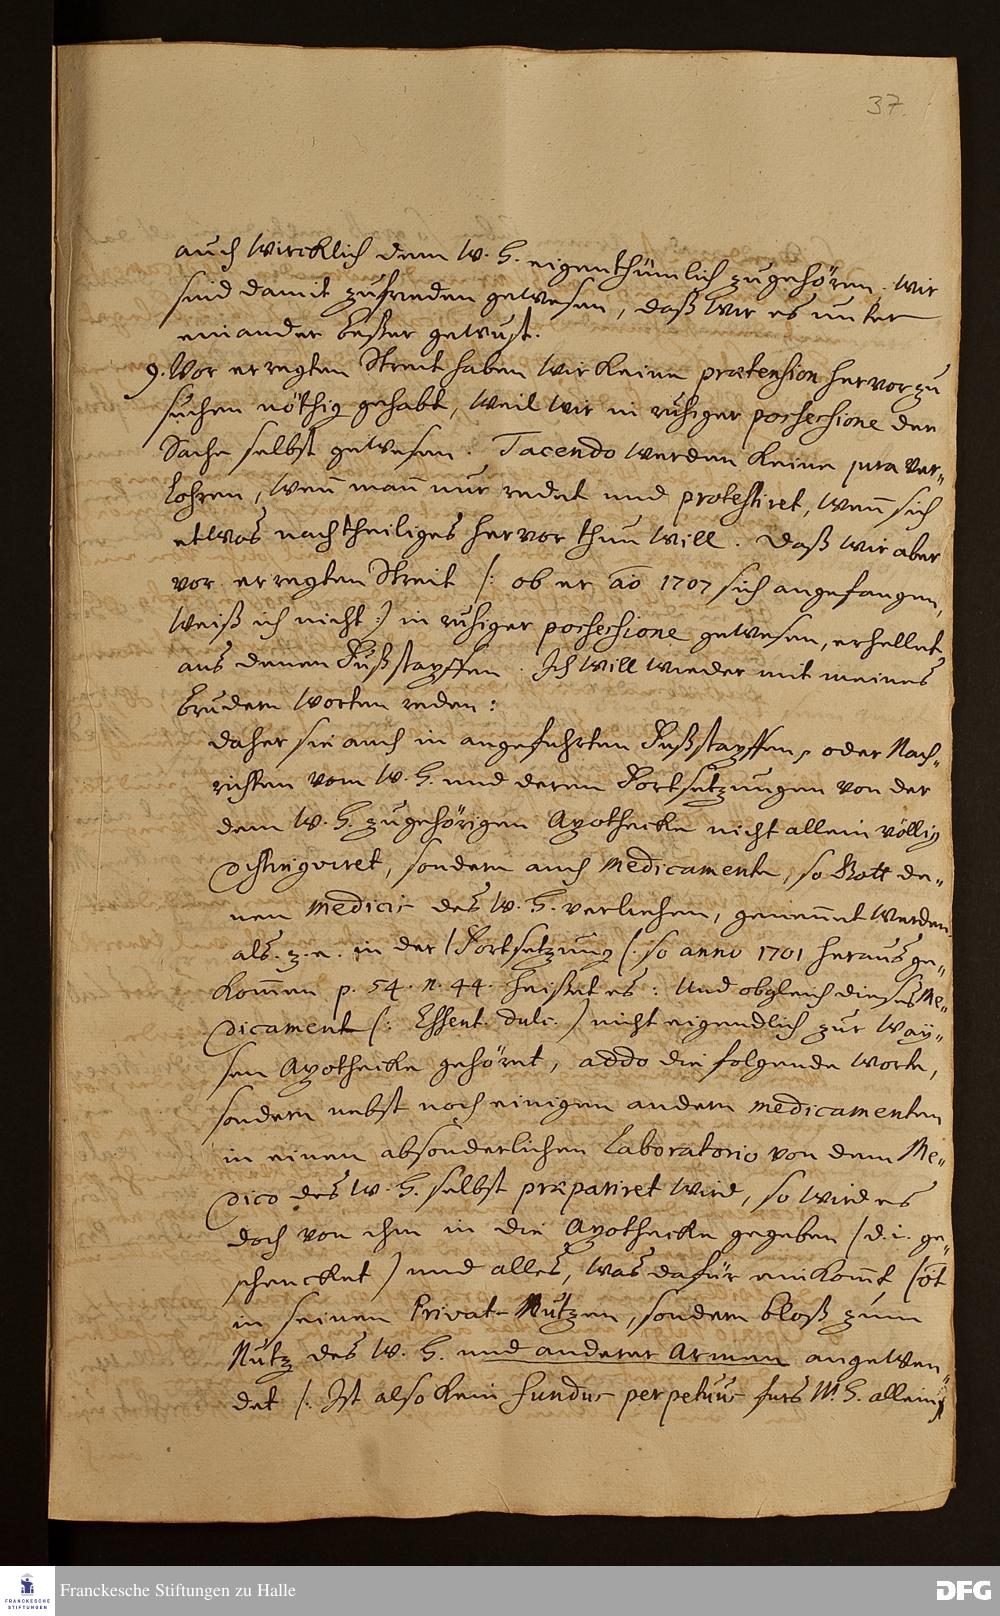 37.
auch wircklich dem W. H. eigenthümlich zugehören. Wir
sind damit zufrieden gewesen, daß wir es unter
einander beßer gewust.
9. Vor erregtem Streit haben wir keine prætension hervorzu
suchen nöthig gehabt, weil wir in ruhiger possessione der
Sache selbst gewesen. Tacendo werden keine jura ver-
lohren, wenn mann nur redet und protestiret, wenn sich
etwas nachtheiliges hervor thun will. Daß wir aber
vor erregtem Streit /: ob er ao 1707 sich angefangen,
weiß ich nicht :/ in ruhiger possessione gewesen, erhellet
aus denen Fußstapffen. Ich will wieder mit meines
Brudern Worten reden:
daher sie auch in angeführten Fußstapffen, oder Nach-
richten vom W. H. und deren Fortsetzungen von der
dem W. H. zugehörigen Apothecke nicht allein völlig
distinguiret, sondern auch Medicamente, so Gott de-
nen Medicis des W. H. verliehen, genennet werden
als. z. e. in der Fortsetzung (: so anno 1701 herausge-
kommen p. 54. n. 44. heißet es: Und obgleich dieses Me-
dicament (: Essent. dulc. :) nicht eigendlich zur Way-
sen Apothecke gehöret, addo die folgende Worte,
sondern nebst noch einigen andern medicamenten
in einem absonderlichen Laboratorio von dem Me-
dico des W. H. selbst præpariret wird, so wird es
doch von ihm in die Apothecke gegeben / d. i. ge-
schencket ) und alles, was dafür einkomt, (öt
in seinen Privat-Nutzen, sondern bloß zum
Nutz des W. H. und anderer Armen angewen-
det /: Ist also kein fundus perpetuus furs W. H. allein :/
Franckesche Stiftungen zu Halle
FRANCKESCHE
STIFTUNGEN
DFG